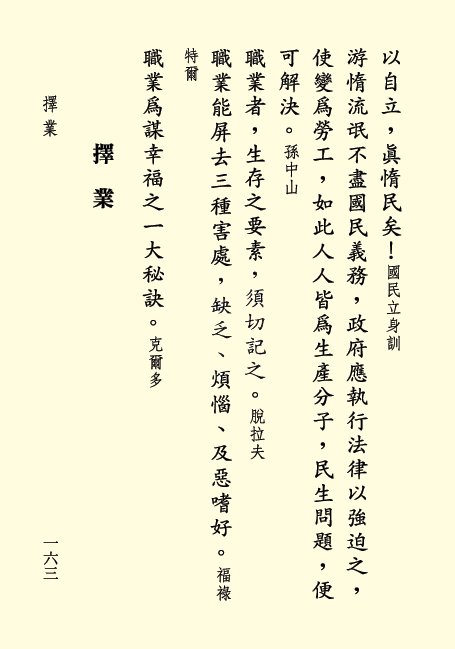 以自立，眞惰民矣！國民立身訓
游惰流氓不盡國民義務，政府應執行法律以強迫之，
使變爲勞工，如此人人皆爲生產分子，民生問題，便
可解決。孫中山
職業者，生存之要素，須切記之。脫拉夫
職業能屏去三種害處，缺乏、煩惱、及惡嗜好。福祿
特爾
職業爲謀幸福之一大秘訣。克爾多
擇業
擇業
一六三